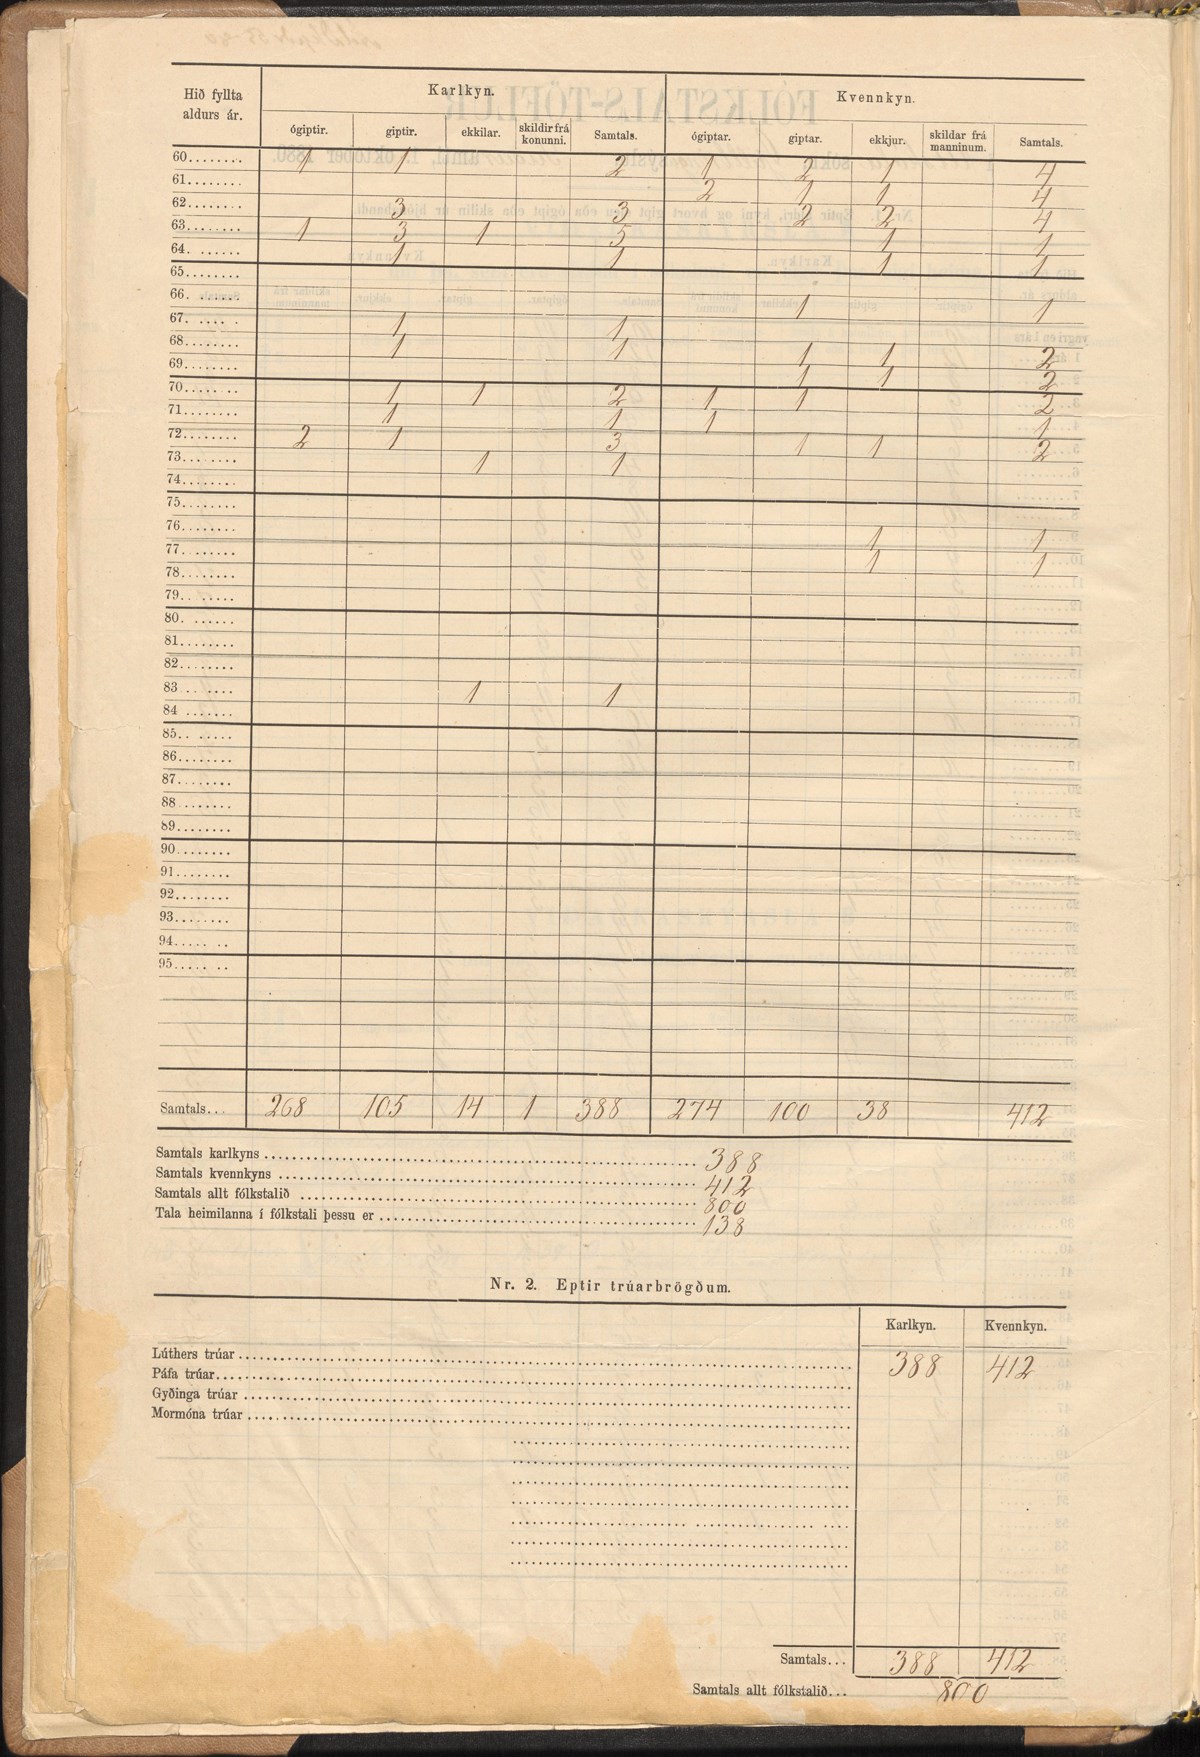 Hið fyllta aldurs ár. Karlkyn. Kvennkyn.
ógiptir. giptir. ekkilar. skildir frá konunni. Samtals. ógiptar. giptar. ekkjur. skildar frá manninum. Samtals.
60........ 1 1 2 1 2 1 4
61........ 2 1 1 4
62........ 3 3 2 2 4
63........ 1 3 1 5 1 1
64. ...... 1 1 1 1
65........
66. ...... 1 1
67. ..... . 1 1
68........ 1 1 1 1 2
69........ 1 1 2
70..... .. 1 1 2 1 1 2
71........ 1 1 1 1
72........ 2 1 3 1 1 2
73.. ..... 1 1
74........
75........
76........ 1 1
77. ...... 1 1
78........
79.. .....
80. ......
81........
82........
83... .... 1 1
84 .......
85.. .....
86........
87........
88 .......
89........
90........
91........
92........
93........
94..... ..
95..... ..
Samtals... 268 105 14 1 388 274 100 38 412
Samtals karlkyns 388
Samtals kvennkyns 412
Samtals allt fólkstalið 800
Tala heimilanna í fólkstali þessu er 138
Nr. 2. Eptir trúarbrögðum.
Karlkyn. Kvennkyn.
Lúthers trúar 388 412
Páfa trúar
Gyðinga trúar
Mormóna trúar
Samtals... 388 412
Samtals allt fólkstalið... 800